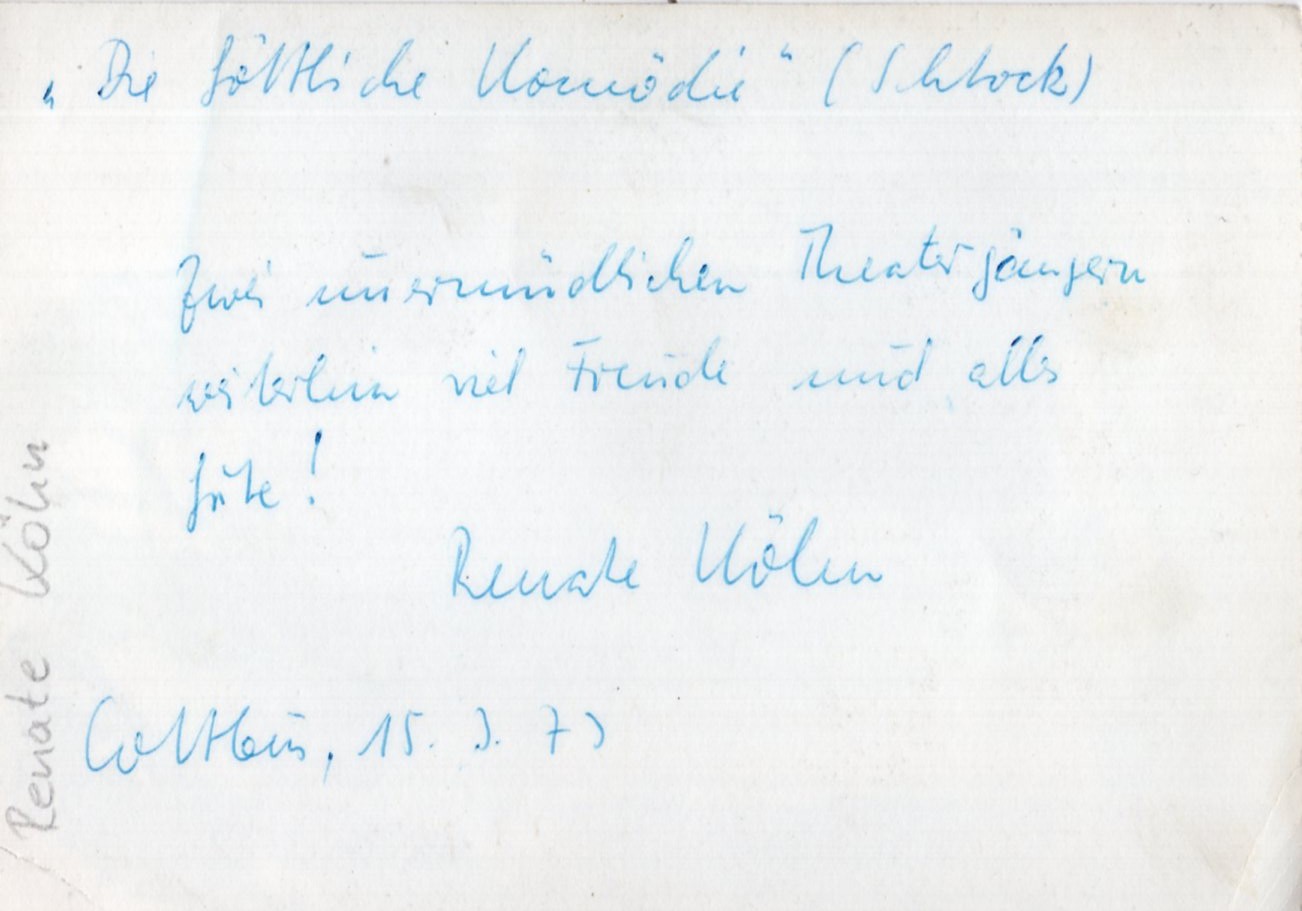 „Die Göttliche Komödie" (Schtock)
Zwei unermüdlichen Theatergängern
weiterhin viel Freude und alles
Gute!
Renate Köhn
Cottbus, 15. 3. 73
Renate Köhn